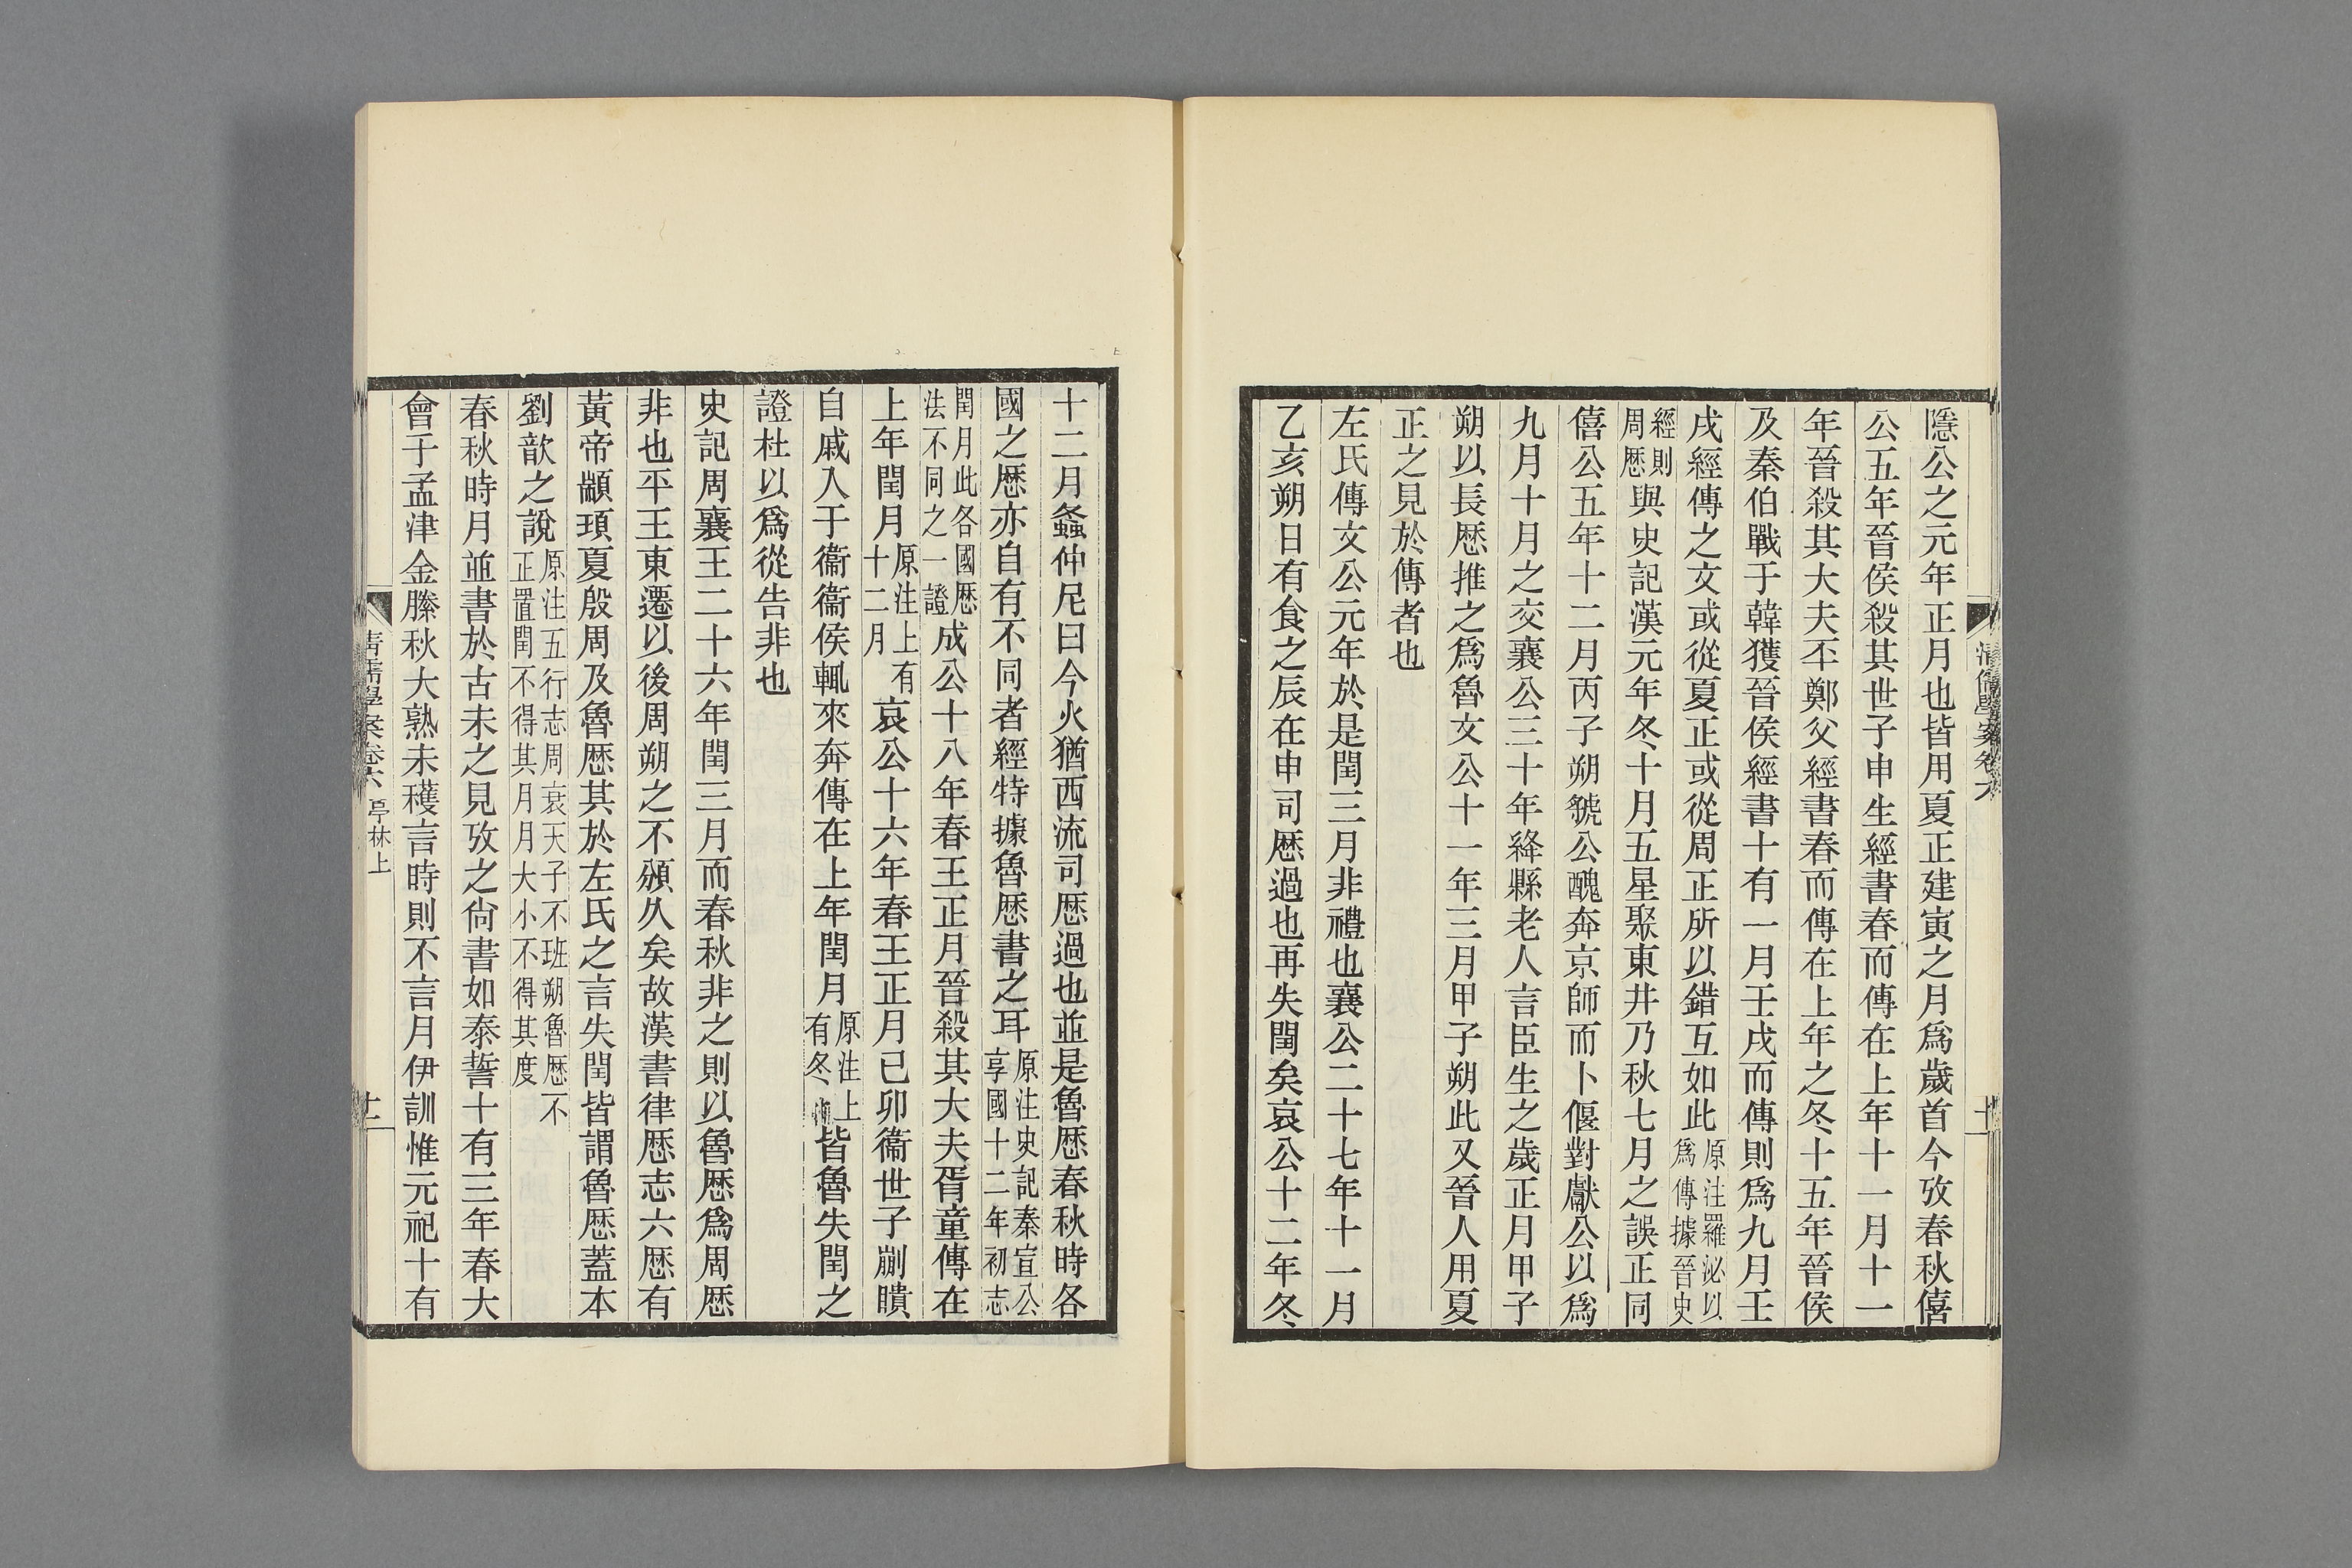 隱公之元年正月也皆用夏正建寅之月爲歲首今攷春秋僖
公五年晉侯殺其世子申生經書春而傳在上年十一月十一
年晉殺其大夫丕鄭父經書春而傳在上年之冬十五年晉侯
及秦伯戰于韓獲晉侯經書十有一月壬戌而傳則爲九月壬
戌經傳之文或從夏正或從周正所以錯互如此原注羅泌以爲傳據晉史
經則周厯與史記漢元年冬十月五星聚東井乃秋七月之誤正同
僖公五年十二月丙子朔虢公醜奔京師而卜偃對獻公以爲
九月十月之交襄公三十年絳縣老人言臣生之歲正月甲子
朔以長厯推之爲魯文公十一年三月甲子朔此又晉人用夏
正之見於傳者也
左氏傳文公元年於是閏三月非禮也襄公二十七年十一月
乙亥朔日有食之辰在申司厯過也再失閏矣哀公十二年冬
清儒學案卷六
十
十二月螽仲尼曰今火猶西流司厯過也並是魯厯春秋時各
國之厯亦自有不同者經特據魯厯書之耳原注史記秦宣公享國十二年初志
閏月此各國厯法不同之一證成公十八年春王正月晉殺其大夫胥童傳在
上年閏月原注上有十二月哀公十六年春王正月已卯衞世子蒯瞶
自戚入于衞衞侯輒來奔傳在上年閏月原注上有冬皆魯失閏之
證杜以爲從告非也
史記周襄王二十六年閏三月而春秋非之則以魯厯爲周厯
非也平王東遷以後周朔之不頒久矣故漢書律厯志六厯有
黃帝顓頊夏殷周及魯厯其於左氏之言失閏皆謂魯厯蓋本
劉歆之說原注五行志周衰天子不班朔魯厯不正置閏不得其月月大小不得其度
春秋時月並書於古未之見攷之尙書如泰誓十有三年春大
會于孟津金縢秋大熟未穫言時則不言月伊訓惟元祀十有
清儒學案卷六 亭林上
十一